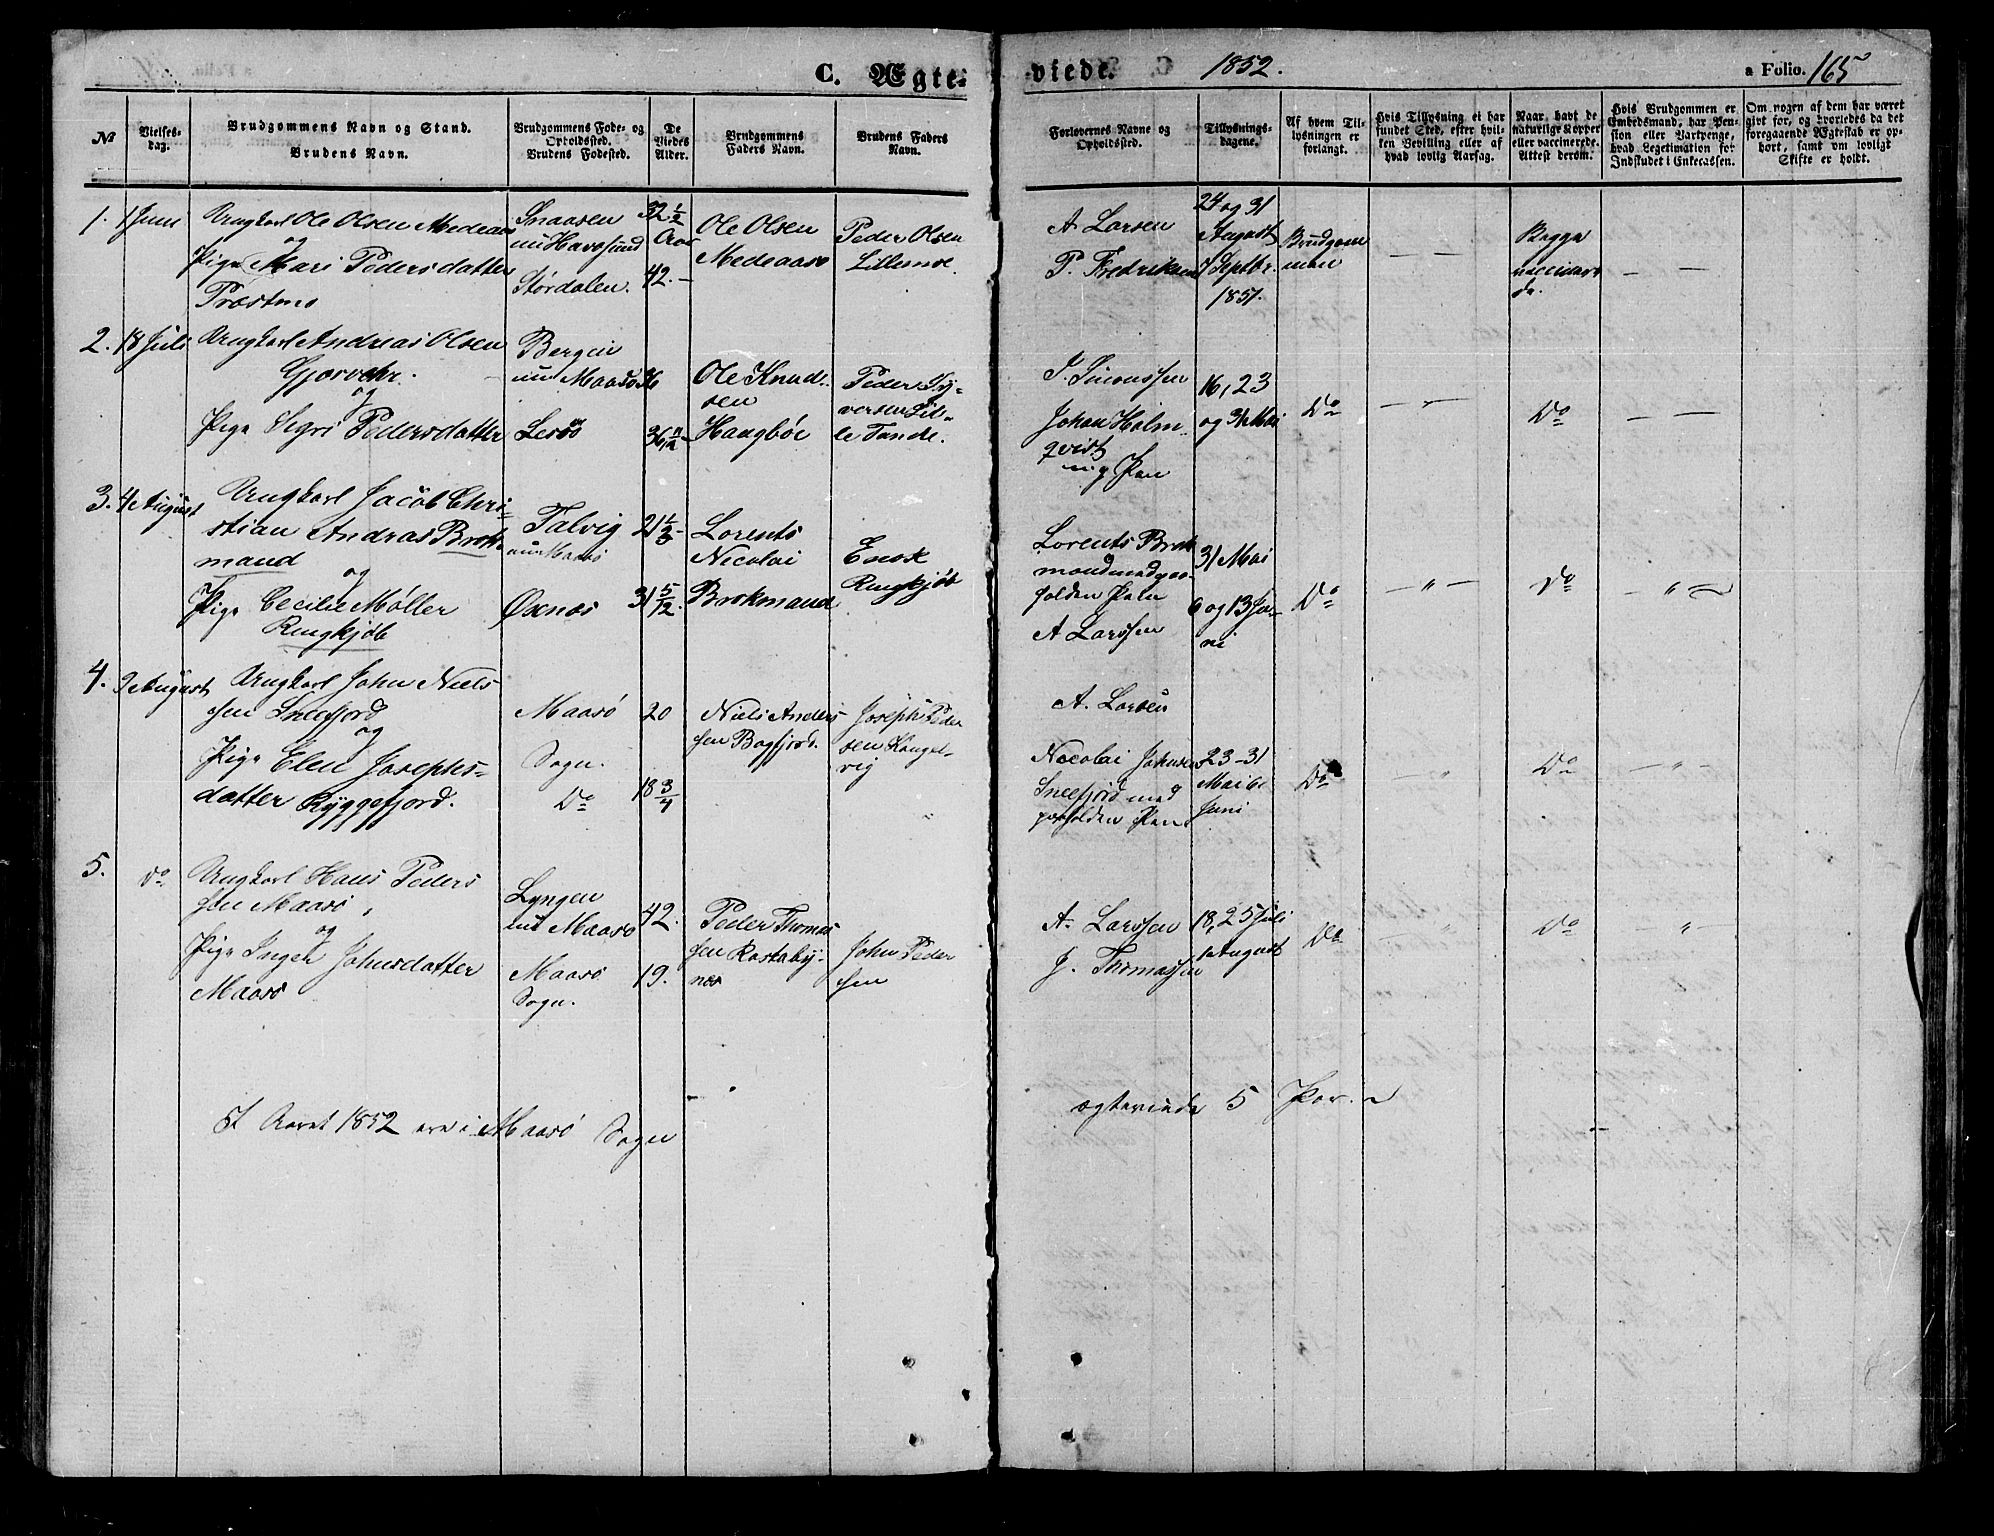 C. Ægte-
viede. 1852. a Folio. 165
№
Vielses-
dag.
Brudgommens Navn og Stand.
Brudens Navn.
Brudgommens Føde- og
Opholdssted.
Brudens Fødested.
De
Viedes
Alder.
Brudgommens
Faders Navn.
Brudens Faders
Navn.
Forlovernes Navne og
Opholdssted.
Tillysnings-
dagene.
Af hvem Til-
lysningen er
forlangt.
Hvis Tillysning ei har
fundet Sted, efter hvil-
ken Bevilling eller af
hvad lovlig Aarsag.
Naar, havt de
naturlige Kopper
eller vaccinerede.
Attest derom.
Hvis Brudgommen er
Embedsmand, har Pen-
sion eller Vartpenge,
hvad Legetimation for
Indskudet i Enkecassen.
Om nogen af dem har været
gift før, og hvorledes da det
foregaaende Ægteskab er op-
hørt, samt om lovligt
Skifte er holdt.
1. 1 Juni
Ungkarl Ole Olsen Medeaas
og
Pige Mari Pedersdatter
Præstmo
Snaasen
nu Havøsund
Størdalen.
32 1/2
Aar
42. –
Ole Olsen
Medeaas
Peder Olsen
Lillemoe.
A. Larsen
P. Fredriksen
24 og 31
August
7 Septbr.
1851.
Brudgom
men
— —
Begge
vaccinere
de.
— —
2. 18 Juli
Ungkarl Andreas Olsen
og
Pige Segri Pedersdatter
Bergen
nu Maasø
Lesøe
36
36
Ole Knud-
sen
Haugbøe
Peder Sy-
versen Lil-
le Tande.
J. Simonssen
Johan Holm
qvist
16, 23
og 31 Mai
Do
— " —
Do
3. 4 August
Ungkarl Jacob Chri-
stian Andras Brok-
mand
og
Pige Cecilie Møller
Ringkjøb
Talvig
nu Maasø
Øxnæs
21 1/2 –
31 5/12.
Lorents
Nicolai
Brokmand
Enok
Ringkjøb
Lorents Brok
A Larssen
31 Mai
6 og 13 Ju-
ni
Do
— " —
Do
— " —
4. 9 August
Ungkarl John Niels
sen Sneefjord
og
Pige Elen Josephs-
datter Ryggefjord.
Maasø
Sogn.
Do
20
18 3/4
Niels Anders
sen Bagfjord.
Joseph Peder
sen Kongel-
vig
A. Larsen
Nicolai Johnsen
Sneefjord
23–31
Mai 6
Juni
Do
— " —
Do
— " —
5. Do
Ungkarl Hans Peders
sen Maasø
og
Pige Inger Johnsdatter
Maasø
Lyngen
nu Maasø
Maasø
Sogn.
42.
19.
Peder Thomas
sen Rastaby-
næs
John Peder
sen
A. Larssen
J. Thomassen
18, 25 Juli
1 August
Do
— " —
Do
— " —
I Aaret 1852 ere i Maasø Sogn
ægteviede 5 Par.